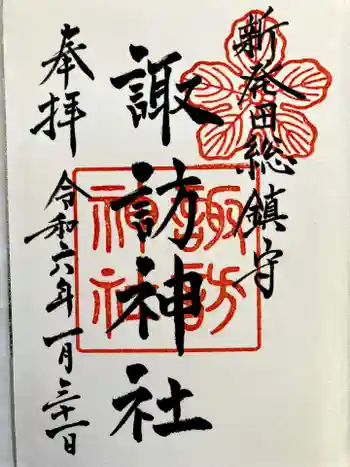 新発田総鎮守
諏訪神社
奉拝
令和六年一月三十一日
諏訪
神社